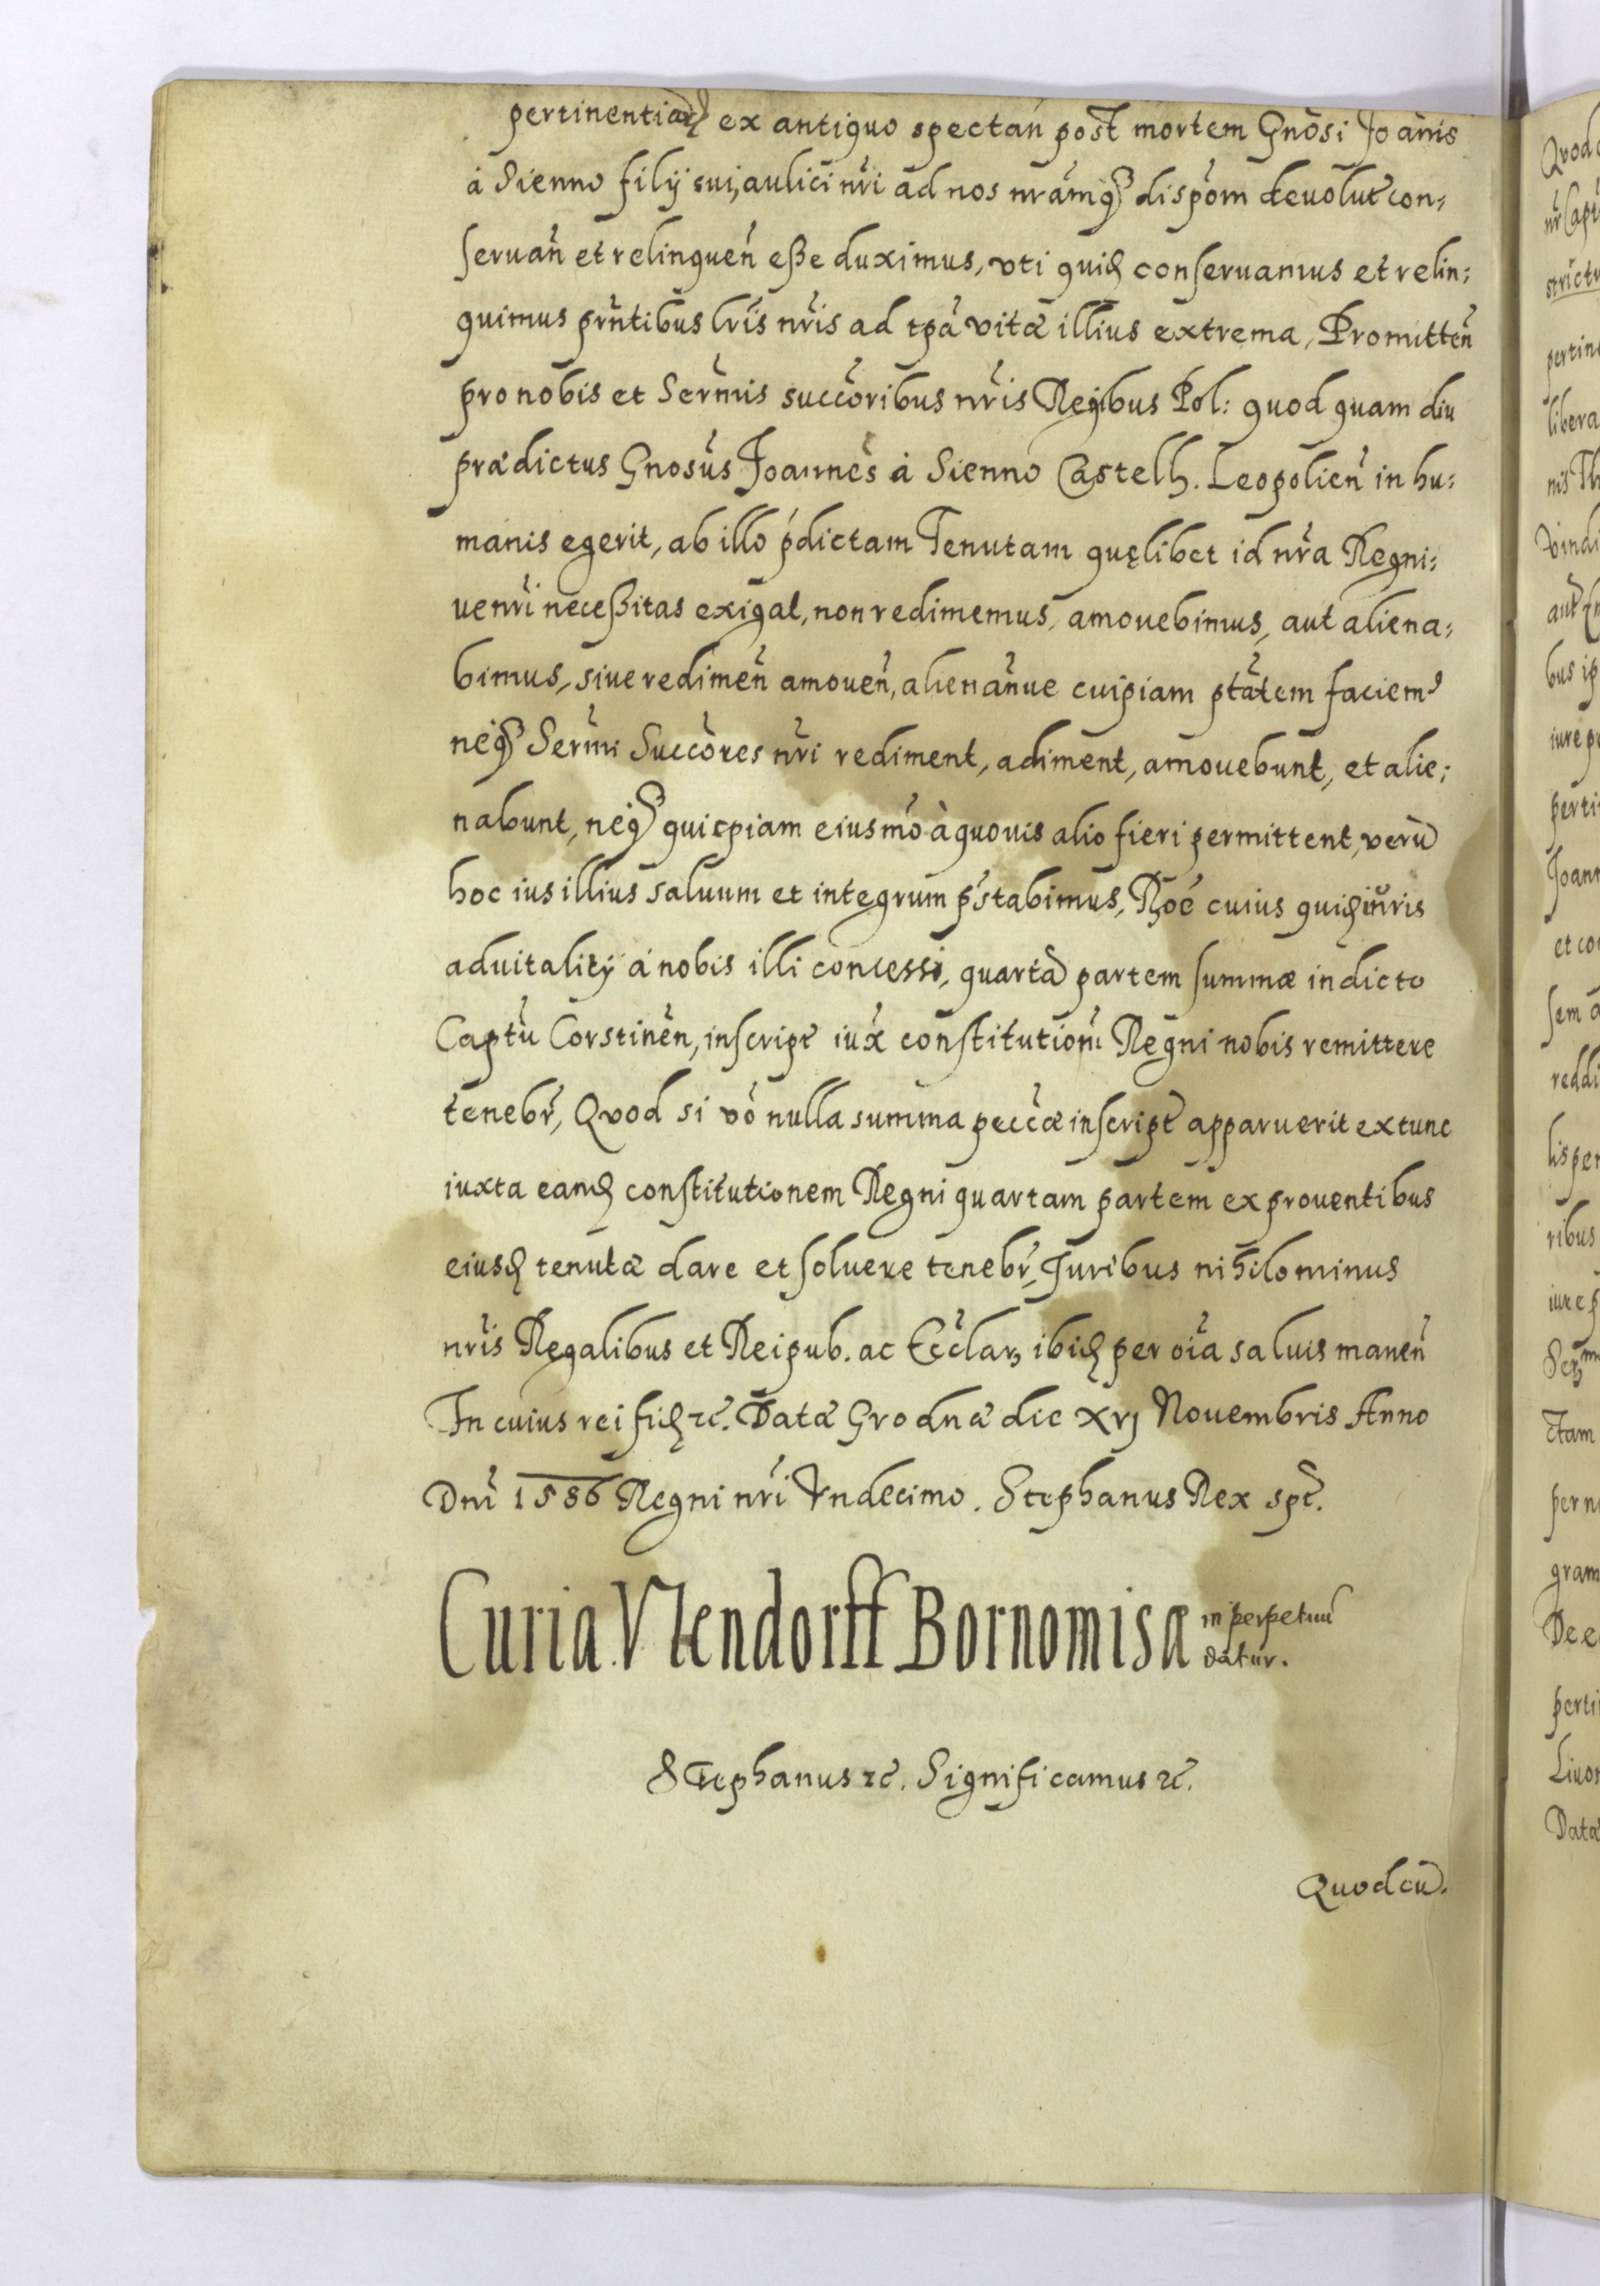 ex antiquo spectań post mortem Gnosi Joanis
á Sienno filÿ sui, aulici nři ad nos nramq́ꝫ dispom̃ deuolut con:
seruan̄ et relinquen̄ eße duximus, vti quidē conseruamus et relin:
quimus prn̄tibus lr̄is nr̄is ad tpā vitæ illius extrema, Promitten̄
pro nobis et Serm̄is succōribus nr̄is Regibus Pol: quod quam diu
prædictus Gnosūs Joannēs á Sienno Castell. Leopolien̄ in hu:
manis egerit, ab illo p̄dictam Tenutam quęlibet id nr̄a Regni:
ue nr̄i neceßitas exigat, non redimemus, amouebimus, aut aliena:
bimus, siue redimen̄ amouen̄, alienan̄ue cuipiam ptātem faciemꝰ
neq́ꝫ Serm̄i Succōres nr̄i rediment, adiment, amouebunt, et alie:
nabunt, neq́ꝫ quicpiam eiusmō à quouis alio fieri permittent, verū
hoc ius illius saluum et integrum p̄stabimus, Rōe cuius quidē iuris
aduitalitÿ á nobis illi concessi, quartā partem summæ in dicto
Captū Corstinēn, inscript iux̄ constitution̄ Regni nobis remittere
tenebr̄, Quod si vō nulla summa peccǣ inscript apparuerit extunc
iuxta eandē constitutionem Regni quartam partem ex prouentibus
eiusdē tenutæ dare et soluere tenebr̄, Juribus nihilominus
nr̄is Regalibus et Reipub. ac Eccl̄arꝫ ibidē per oīa saluis manen̄
In cuius rei fidē ꝛc̄. Datæ Grodnæ die xvj Nouembris Anno
Dnī 1586 Regni nr̄i Vndecimo. Stephanus Rex spt̄.
Curia Vtendorff Bornomisæ in perpetuū
datur.
Stephanus ꝛc̄. Significamus ꝛc̄.
Quod cū.